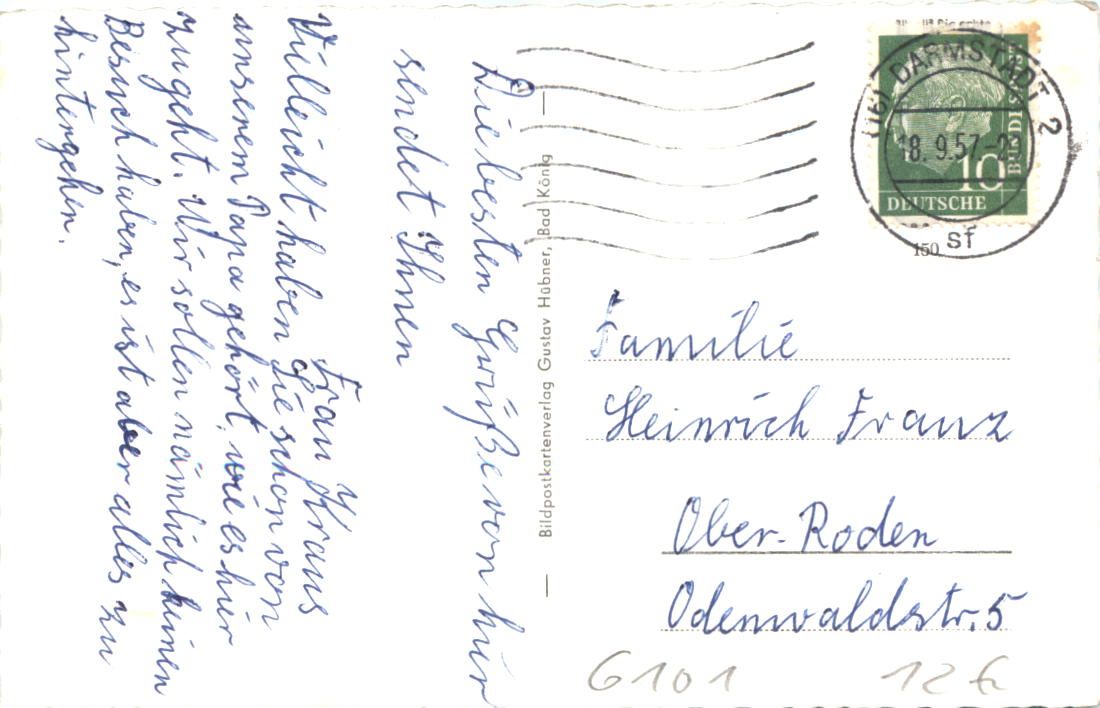 Die besten Grüße von hier
sendet Ihnen
Frau Kraus
Vielleicht haben Sie schon von
unserem Papa gehört, wie es hier
zugeht. Wir sollen nämlich keinen
Besuch haben, es ist aber alles zu
hintergehen.
Bildpostkartenverlag Gustav Hübner, Bad König
(16) DARMSTADT 2
18. 9.57-2
sf
10
DEUTSCHE
BUNDES
150
Familie
Heinrich Franz
Ober-Roden
Odenwaldstr. 5
G101
12